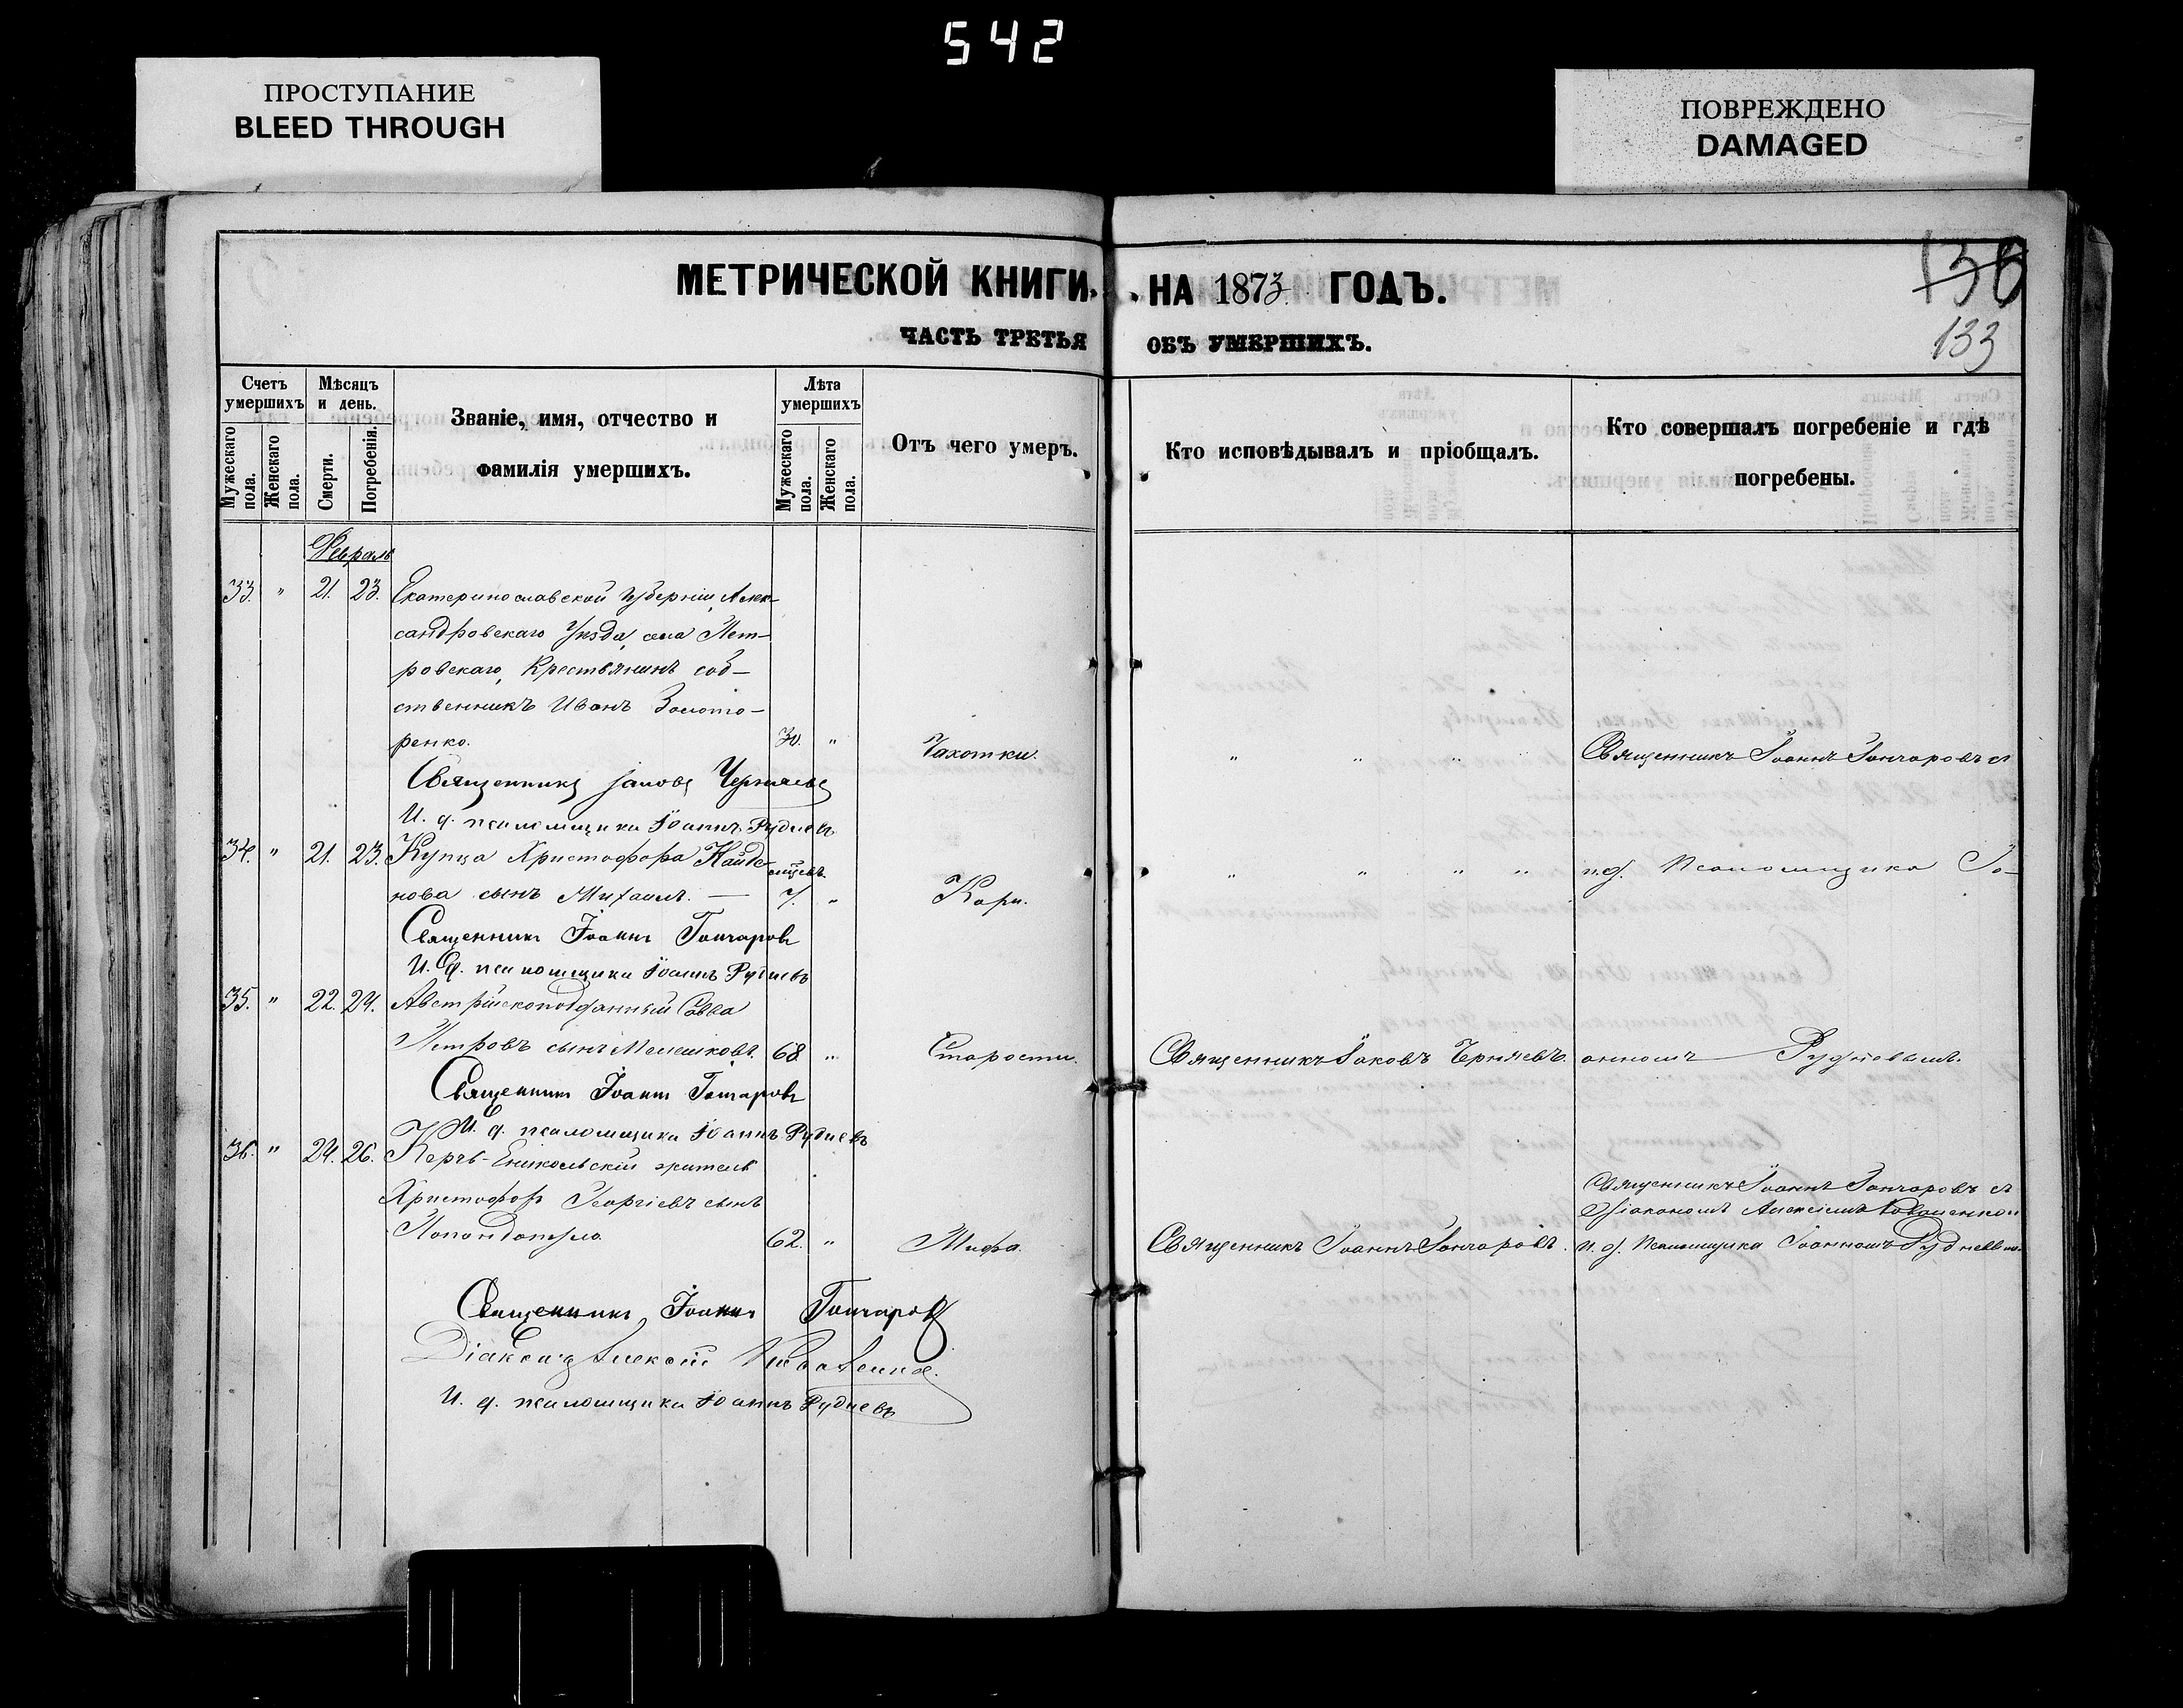 542
ПРОСТУПАНИЕ
BLEED THROUGH
ПОВРЕЖДЕНО
DAMAGED
МЕТРИЧЕСКОЙ КНИГИ НА 1873 ГОДЪ.
ЧАСТЬ ТРЕТЬЯ ОБЪ УМЕРШИХЪ.
136
133
Счетъ умершихъ
Мужескаго пола.
Женскаго пола.
Мѣсяцъ и день.
Смерти.
Погребенія.
Званіе, имя, отчество и
фамилія умершихъ.
Лѣта умершихъ
Мужескаго пола.
Женскаго пола.
Отъ чего умеръ.
Кто исповѣдывалъ и пріобщалъ.
Кто совершалъ погребеніе и гдѣ
погребены.
Февраль
33. " 21. 23. Екатеринославской Губерніи, Алек-
сандровскаго Уѣзда, села Пет-
ровскаго, Крестьянинъ соб-
ственникъ Иванъ Золото-
ренко. 30. " Чахотки. " " " Священникъ Іоаннъ Гончаровъ съ
Священникъ Іаковъ Черняевъ
И. д. псаломщика Іоаннъ Рудневъ
34. " 21. 23. Купца Христофора Найде-
нова сынъ Михаилъ. — 7. мѣсяцевъ " Кори. " " " " и. д. Псаломщика Іо-
Священникъ Іоаннъ Гончаровъ
И. д. псаломщика Іоаннъ Рудневъ
35. " 22. 24. Австрійскоподданный Савва
Петровъ сынъ Мелешковъ. 68 " Старости. Священникъ Іаковъ Черняевъ. анномъ Рудневымъ.
Священникъ Іоаннъ Гончаровъ
И. д. псаломщика Іоаннъ Рудневъ
36. " 24. 26. Керчь-Еникольскій житель
Христофоръ Георгіевъ сынъ
62. " Священникъ Іоаннъ Гончаровъ.
Священникъ Іоаннъ Гончаровъ съ
Діакономъ Алексіемъ
и. д. Псаломщика Іоанномъ Рудневымъ
Священникъ Іоаннъ Гончаровъ
Діаконъ Алексій
И. д. псаломщика Іоаннъ Рудневъ